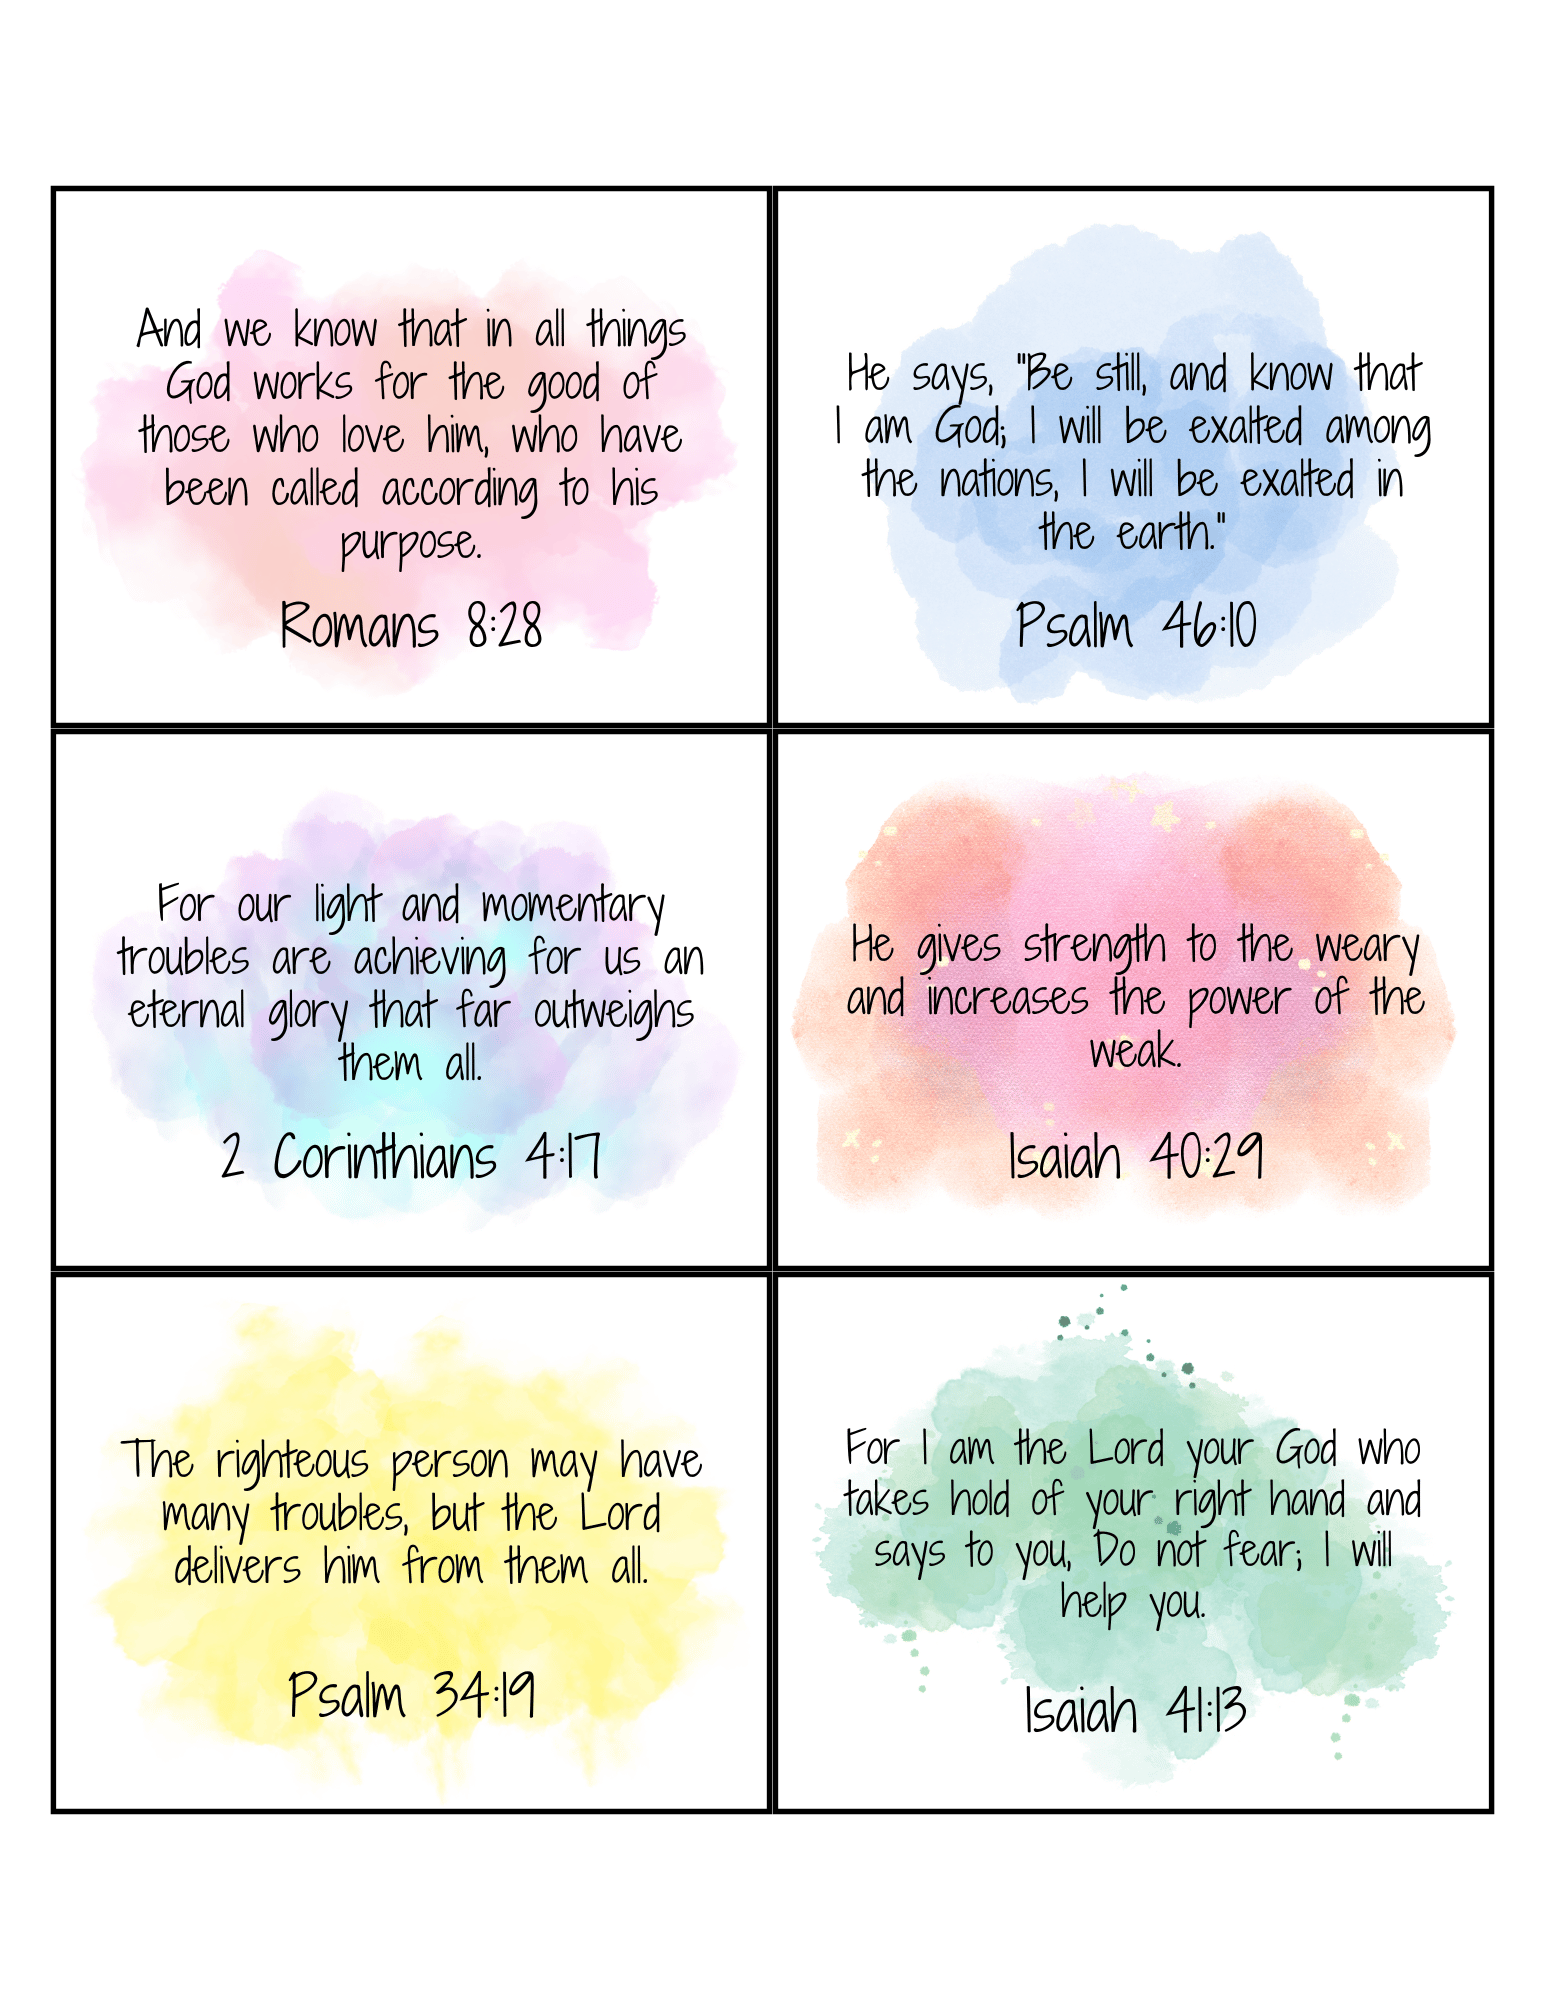 And we know that in all things
God works for the good of
those who love him, who have
been called according to his
purpose.
Romans 8:28
He says, "Be still, and know that
I am God; I will be exalted among
the nations, I will be exalted in
the earth."
Psalm 46:10
For our light and momentary
troubles are achieving for us an
eternal glory that far outweighs
them all.
2 Corinthians 4:17
He gives strength to the weary
and increases the power of the
weak.
Isaiah 40:29
The righteous person may have
many troubles, but the Lord
delivers him from them all.
Psalm 34:19
For I am the Lord your God who
takes hold of your right hand and
says to you, Do not fear; I will
help you.
Isaiah 41:13